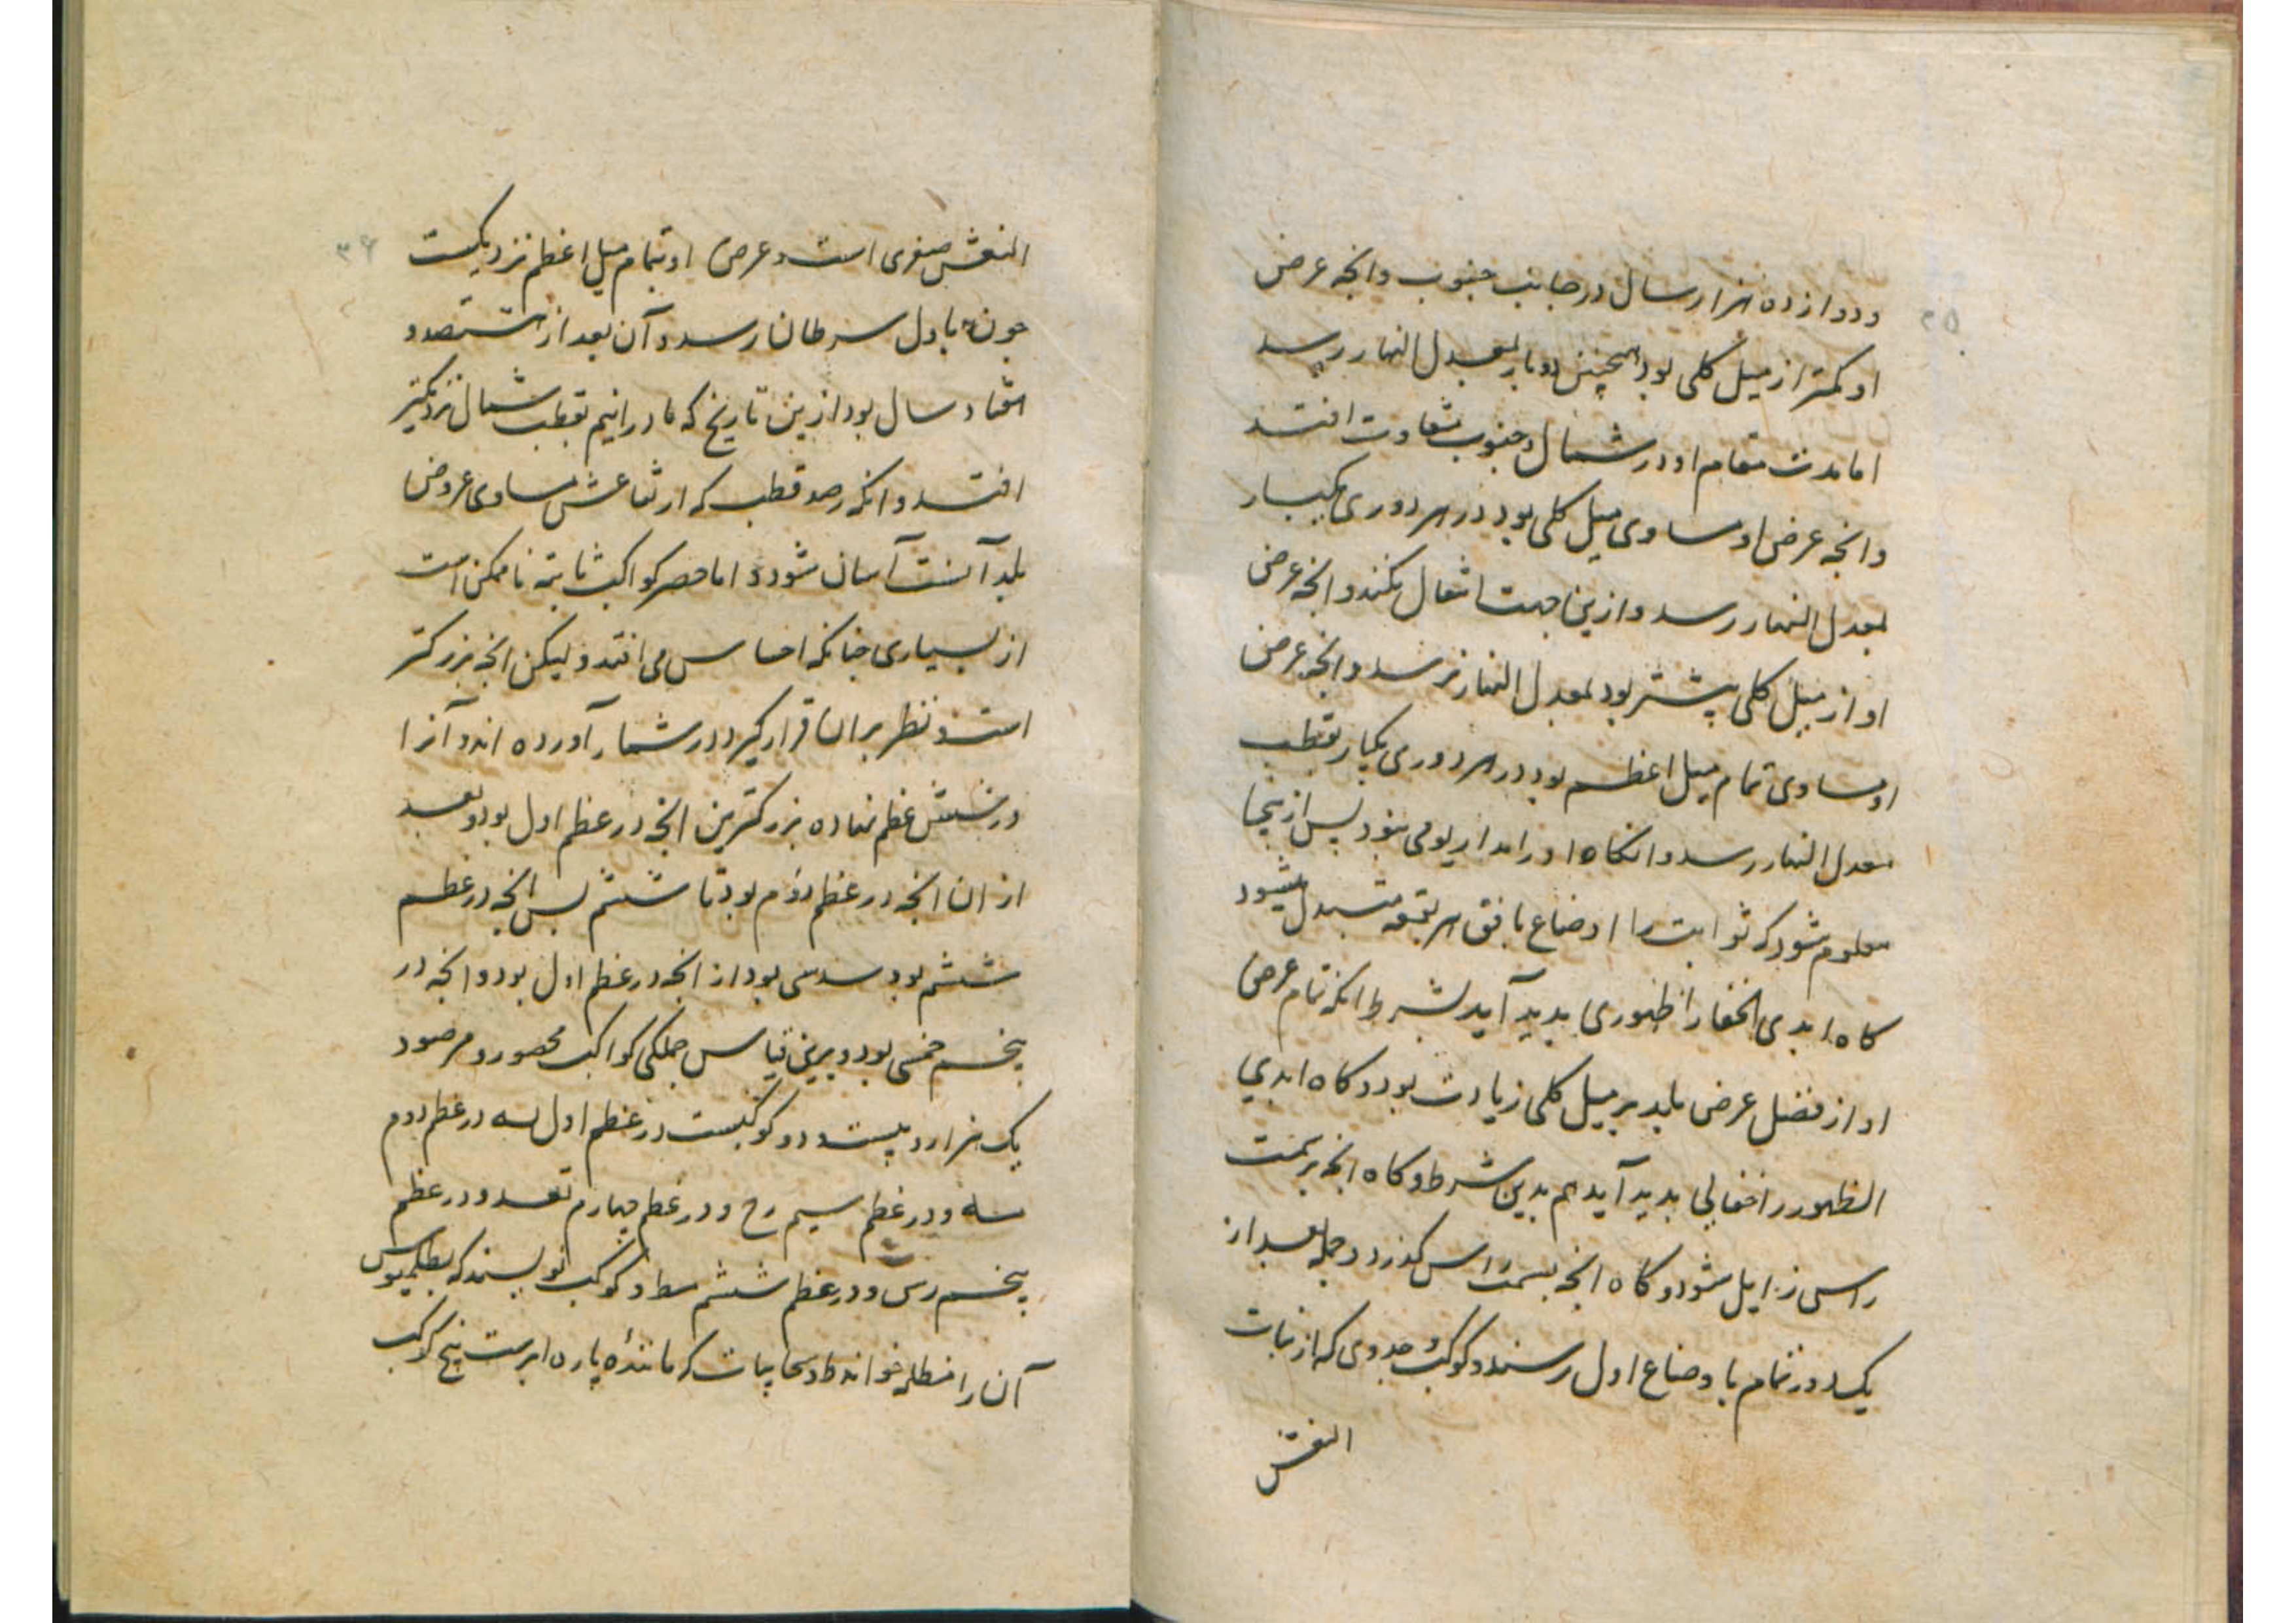 ودوازده هزار سال در جانب جنوب وانچه عرض
او کمتر از میل کلی بود همچنین دوبار بمعدل النهار رسد
اما مدت مقام او در شمال وجنوب متفاوت افتد
وانچه عرض او مساوی میل کلی بود در هر دوری یکبار
بمعدل النهار رسد وازین جهت انتقال نکند وانچه عرض
او از میل کلی بیشتر بود بمعدل النهار نرسد وانچه عرض
او مساوی تمام میل اعظم بود در هر دوری یکبار بقطب
معدل النهار رسد وانکاه او را مدار یومی نبود پس ازینجا
معلوم شود که ثوابت را اوضاع بافق هر بقعه متبدل میشود
کاه ابدی الخفا را ظهوری بدید آید بشرط انکه تمام عرض
او از فضل عرض بلد بر میل کلی زیادت بود وکاه ابدی
الظهور را خفایی بدید آید هم بدین شرط وکاه انچه بر سمت
راس زایل شود وکاه انچه بسمت راس کذرد وجمله بعد از
یک دور تمام با وضاع اول رسند وکوکب جدوی که از بنات
النعش
۳۵
النعش صغری است وعرض او بتمام میل اعظم نزدیکست
چون باول سرطان رسد وآن بعد از ششصد و
هفتاد سال بود ازین تاریخ که ما درانیم بقطب شمال نزدیکتر
افتد وانکه رصد قطب که ارتفاعش مساوی عروض
بلد آنست آسان شود و اما حصر کواکب ثابته ناممکن است
از بسیاری چنانکه احساس می افتد ولیکن انچه بزرکتر
است ونظر بران قرار کیرد در شمار آورده اند وآنرا
در شش عظم نهاده بزرکترین انچه در عظم اول بود وبعد
از ان انچه در عظم دوم بود تا ششم پس انچه در عظم
ششم بود سدسی بود از انچه در عظم اول بود وانچه در
پنجم خمسی بود وبرین قیاس جملکی کواکب محصور ومرصود
یک هزار وبیست ودو کوکبست در عظم اول یه در عظم دوم
مه ودر عظم سیم رح ودر عظم چهارم تعد ودر عظم
پنجم ریز ودر عظم ششم مط وکوکب نویسند که بطلمیوس
آن را مظلم خواند ط وسحابیات که مانندهٔ پاره ابرست پنج کوکب
۳۶